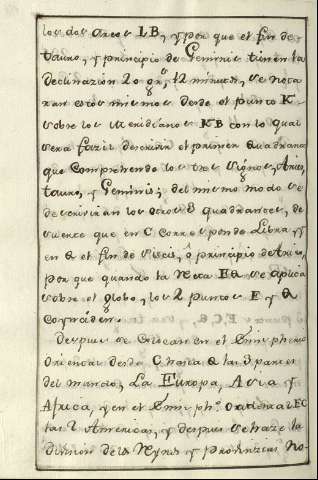 los dos arcos LB, y por que el fin de
tauro, y principio de Geminis tienen la
declinazion 20 gr.s 12 minutos, se nota
ran estos mismos desde el punto K
sobre los meridianos KB con lo qual
sera fazil descrivir el primer quadrante
que Comprehende los tres signos, Aries,
tauro, y Geminis; del mismo modo se
descriviran los otros 3 quadrantes, de
suerte que en C Corresponde Libra, y
en Q el fin de Piscis, ò principio de Aries,
por que quando la Neta EQ se aplica
sobre el globo, los 2 puntos E y Q
Coynziden.
Despues se Colocan en el Emispherio
Oriental desde C hasta Q las 3 partes
del mundo, La Europa, Asia y
Africa, y en el Emisph.o Occidental EC
las 2 Americas, y despues se haze la
division de los Reynos y Provinzias No-